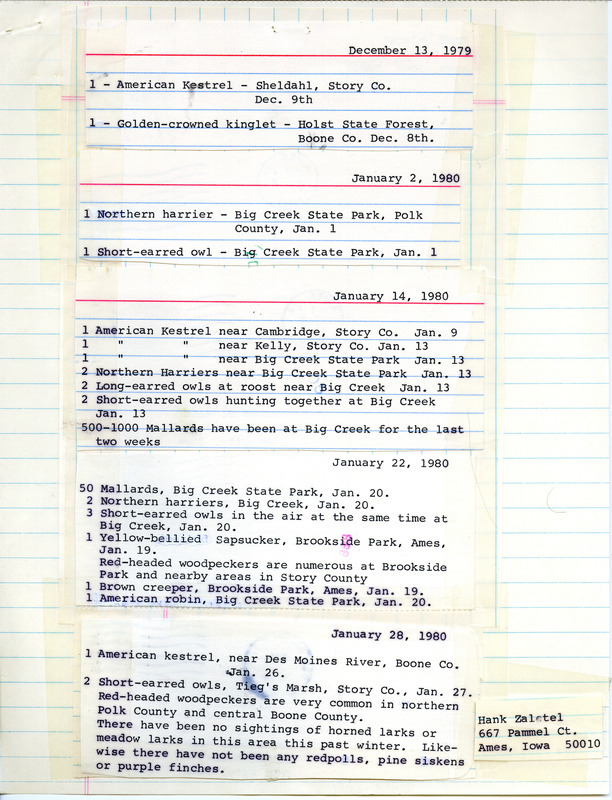 December 13, 1979
1 - American Kestrel - Sheldahl, Story Co.
Dec. 9th
1 - Golden-crowned kinglet - Holst State Forest,
Boone Co. Dec. 8th.
January 2, 1980
1 Northern harrier - Big Creek State Park, Polk
County, Jan. 1
1 Short-earred owl - Big Creek State Park, Jan. 1
January 14, 1980
1 American Kestrel near Cambridge, Story Co. Jan. 9
1 " " near Kelly, Story Co. Jan. 13
1 " " near Big Creek State Park Jan. 13
2 Northern Harriers near Big Creek State Park Jan. 13
2 Long-earred owls at roost near Big Creek Jan. 13
2 Short-earred owls hunting together at Big Creek
Jan. 13
500-1000 Mallards have been at Big Creek for the last
two weeks
January 22, 1980
50 Mallards, Big Creek State Park, Jan. 20.
2 Northern harriers, Big Creek, Jan. 20.
3 Short-earred owls in the air at the same time at
Big Creek, Jan. 20.
1 Yellow-bellied Sapsucker, Brookside Park, Ames,
Jan. 19.
Red-headed woodpeckers are numerous at Brookside
Park and nearby areas in Story County
1 Brown creeper, Brookside Park, Ames, Jan. 19.
1 American robin, Big Creek State Park, Jan. 20.
January 28, 1980
1 American kestrel, near Des Moines River, Boone Co.
Jan. 26.
2 Short-earred owls, Tieg's Marsh, Story Co., Jan. 27.
Red-headed woodpeckers are very common in northern
Polk County and central Boone County.
There have been no sightings of horned larks or
meadow larks in this area this past winter. Like-
wise there have not been any redpolls, pine siskens
or purple finches.
Hank Zaletel
667 Pammel Ct.
Ames, Iowa 50010